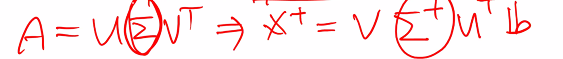 A = UΣVᵀ ⇒ x⁺ = V Σ⁺ Uᵀ b